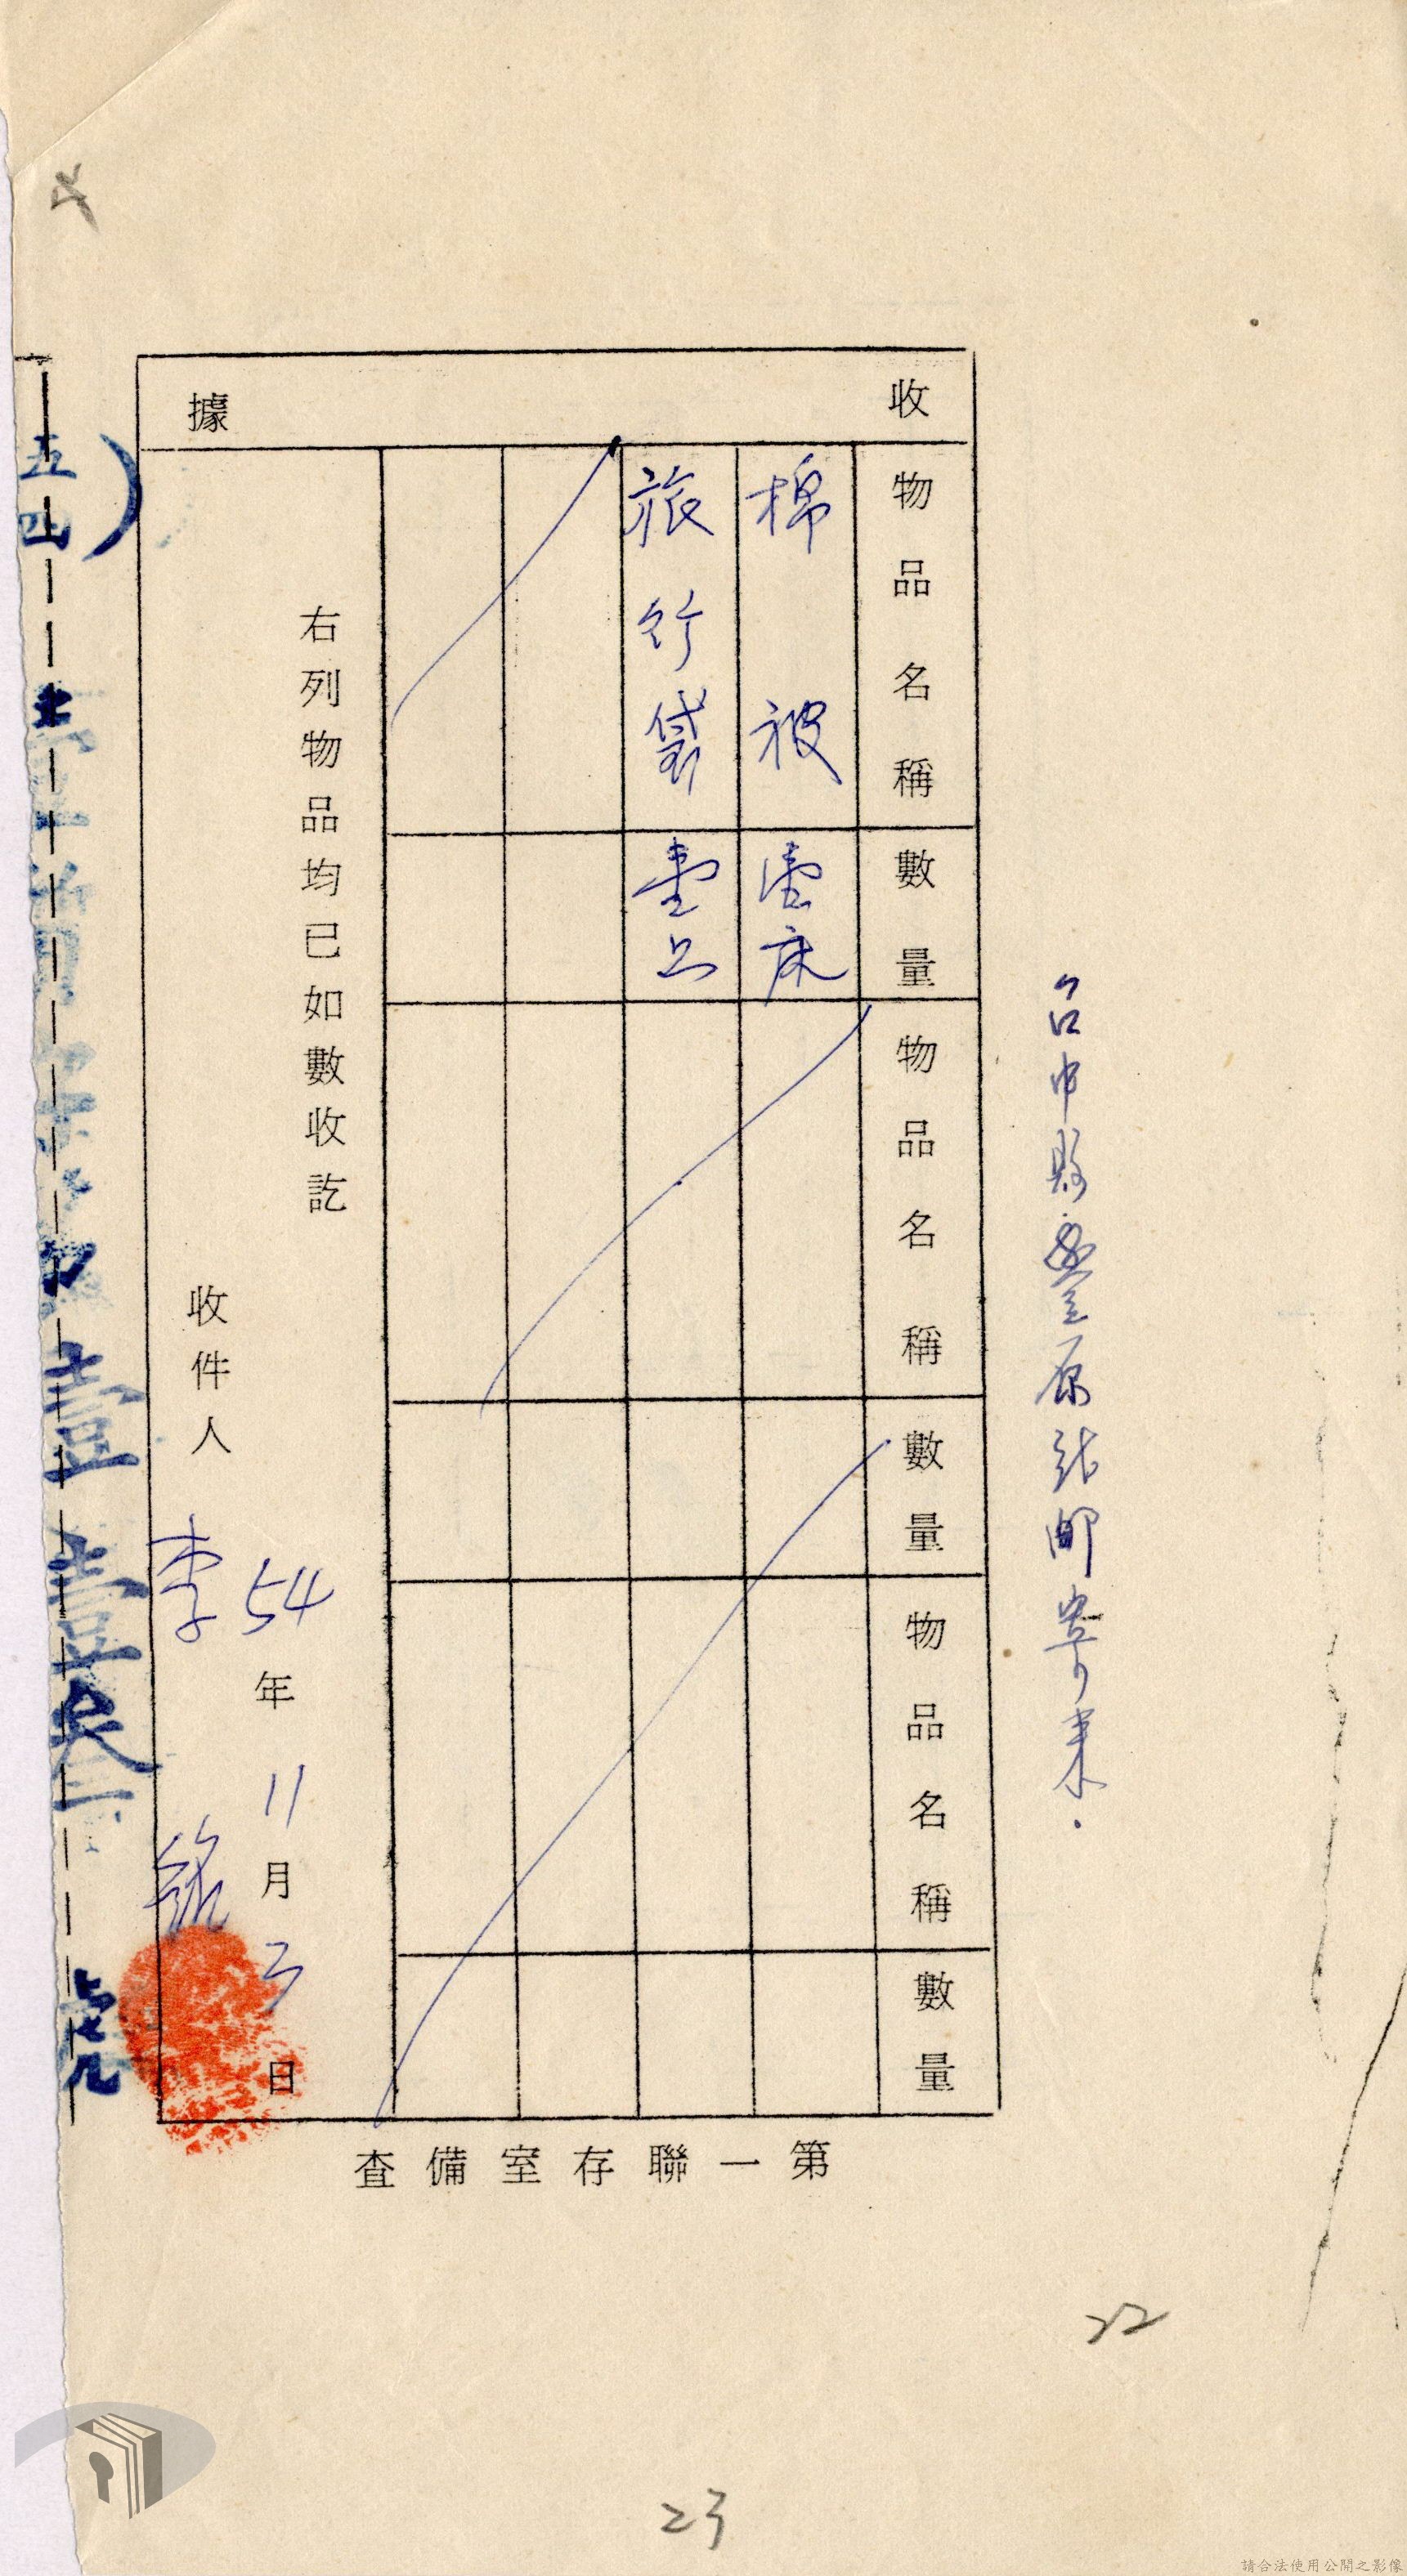 台中縣豐原站郵寄來.
收據
物品名稱 數量 物品名稱 數量 物品名稱 數量
棉被 壹床
旅行袋 壹只
右列物品均已如數收訖
54年11月3日
收件人 李銘
五四
壹壹
號
第一聯存室備查
22
23
請合法使用公開之影像